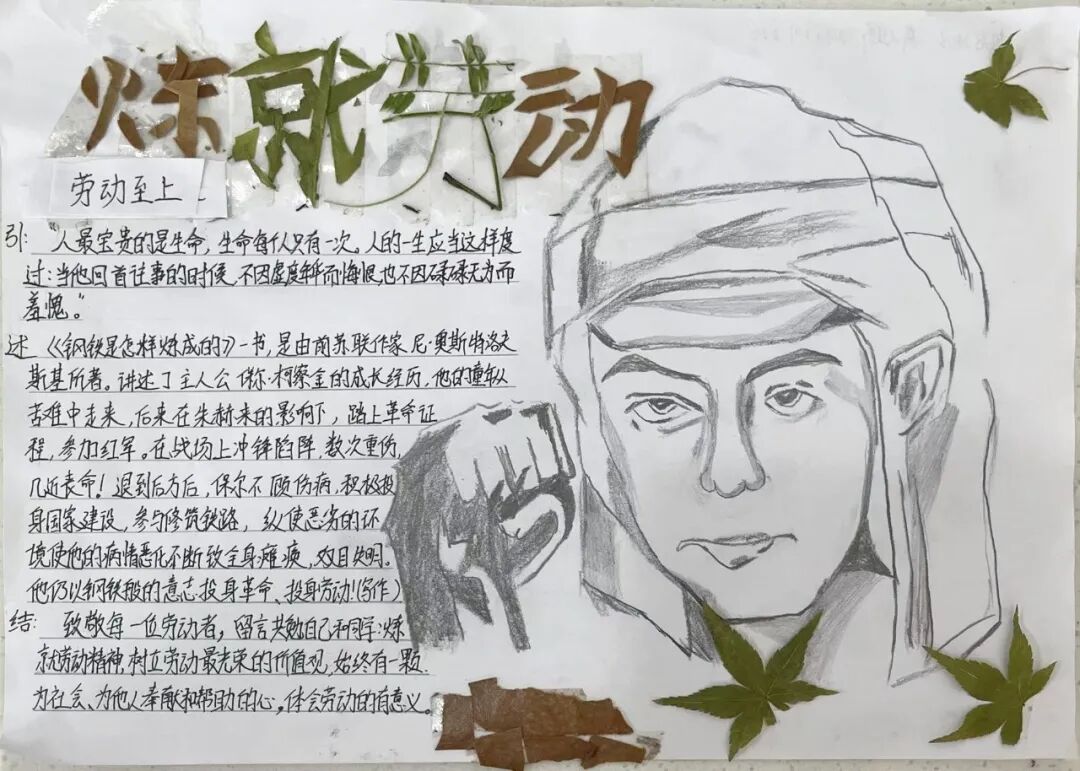 炼就劳动
劳动至上
引：“人最宝贵的是生命，生命每个人只有一次。人的一生应当这样度
过：当他回首往事的时候，不因虚度年华而悔恨，也不因碌碌无为而
羞愧。”
述 《钢铁是怎样炼成的》一书，是由前苏联作家尼·奥斯特洛夫
斯基所著。讲述了主人公保尔·柯察金的成长经历，他的童年从
苦难中走来，后来在朱赫来的影响下，踏上革命征
程，参加红军。在战场上冲锋陷阵，数次重伤，
几近丧命！退到后方后，保尔不顾伤病，积极投
身国家建设，参与修筑铁路，纵使恶劣的环
境使他的病情恶化不断致全身瘫痪，双目失明。
他仍以钢铁般的意志投身革命、投身劳动！(写作)
结：致敬每一位劳动者，留言共勉自己和同学：炼
就劳动精神，树立劳动最光荣的价值观，始终有一颗
为社会、为他人奉献和帮助的心。体会劳动的有意义。